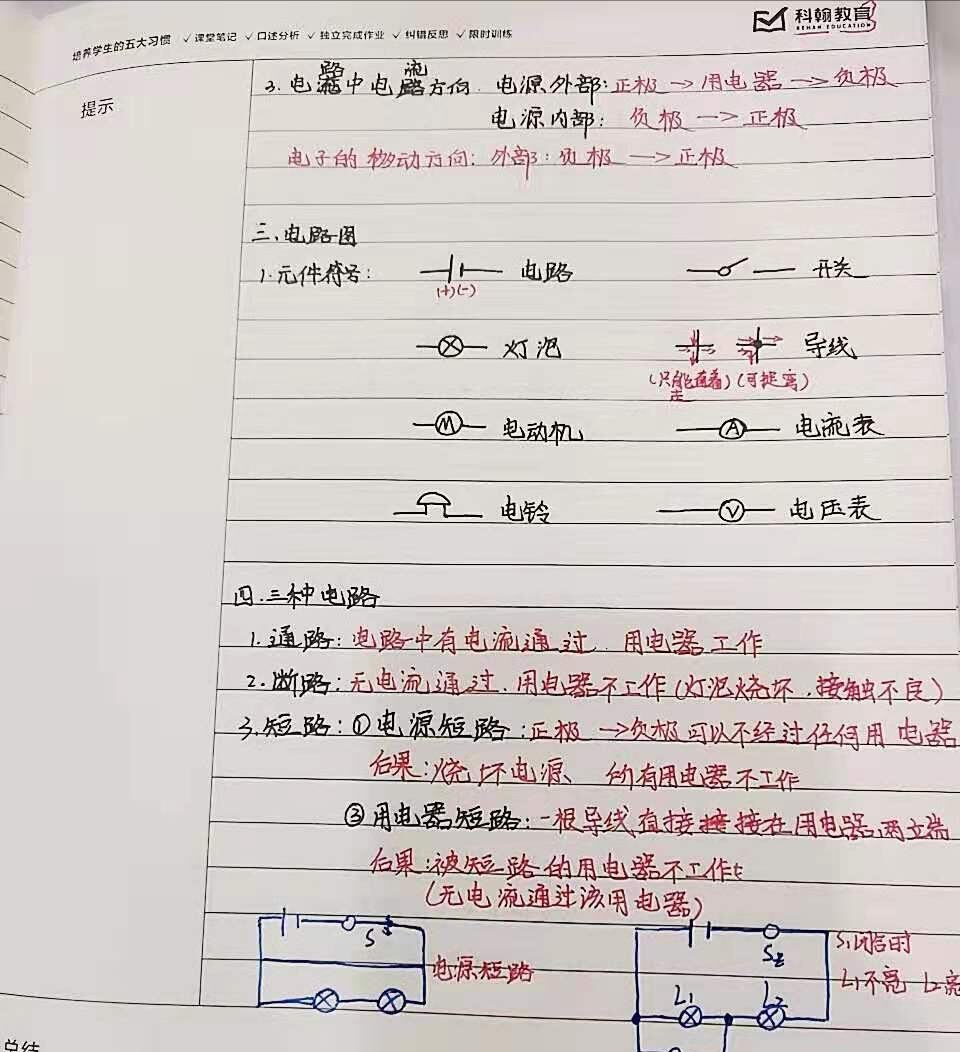 培养学生的五大习惯 ✓课堂笔记 ✓口述分析 ✓独立完成作业 ✓纠错反思 ✓限时训练
科翰教育
KEHAN EDUCATION
提示
3. 电路中电流方向. 电源外部:正极→用电器→负极
电源内部: 负极→正极
电子的移动方向: 外部: 负极→正极
三、电路图
1.元件符号: 电路 开关
(+)(-)
灯泡 导线
(只能直着走)(可拐弯)
M 电动机 A 电流表
电铃 V 电压表
四.三种电路
1.通路: 电路中有电流通过. 用电器工作
2.断路:无电流通过.用电器不工作(灯泡烧坏.接触不良)
3.短路:①电源短路:正极→负极可以不经过任何用电器
后果:烧坏电源、所有用电器不工作
③用电器短路:一根导线直接接在用电器两端
后果:被短路的用电器不工作
(无电流通过该用电器)
S 电源短路
S₂ S₁闭合时
L₁ L₂ L₁不亮 L₂亮
总结